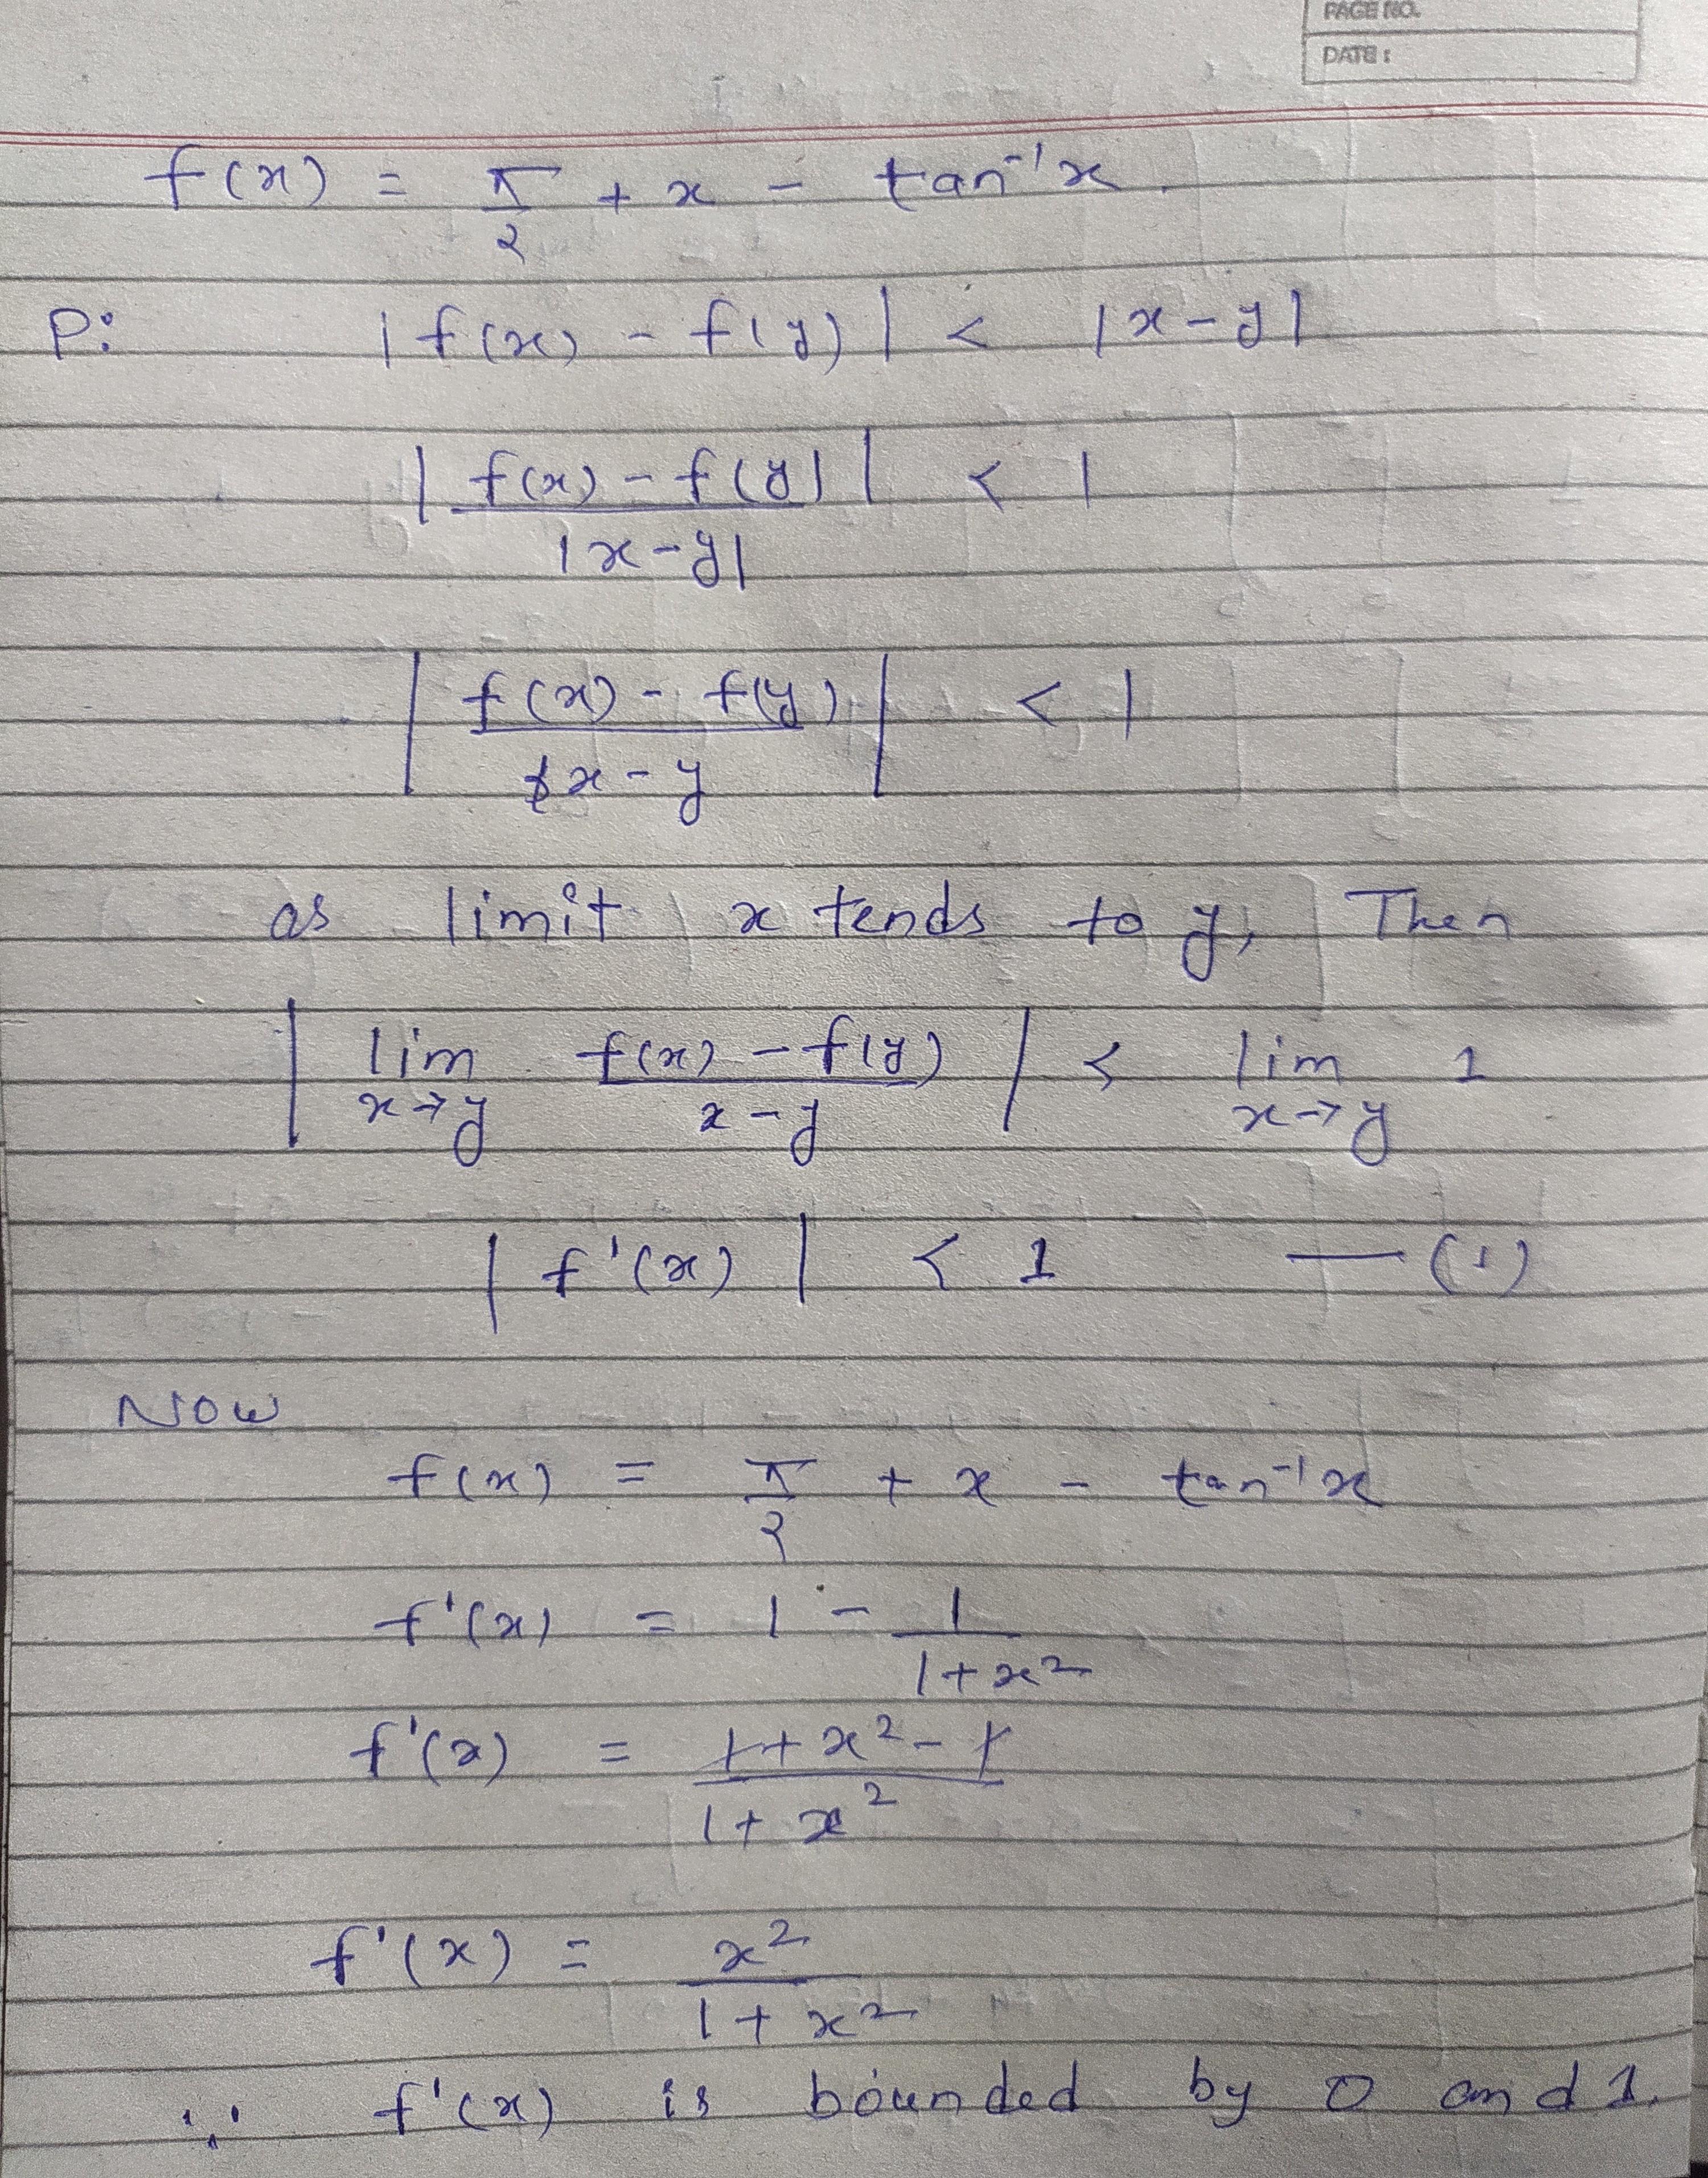 PAGE NO.
DATE :
f(x) = π/2 + x - tan⁻¹x.
P: |f(x) - f(y)| < |x-y|
|f(x) - f(y)| / |x-y| < 1
|(f(x) - f(y)) / (x-y)| < 1
as limit x tends to y, Then
|lim x→y (f(x) - f(y)) / (x-y)| < lim x→y 1
|f'(x)| < 1 —(1)
Now
f(x) = π/2 + x - tan⁻¹x
f'(x) = 1 - 1/(1+x²)
f'(x) = (1+x²-1)/(1+x²)
f'(x) = x²/(1+x²)
∵ f'(x) is bounded by 0 and 1.